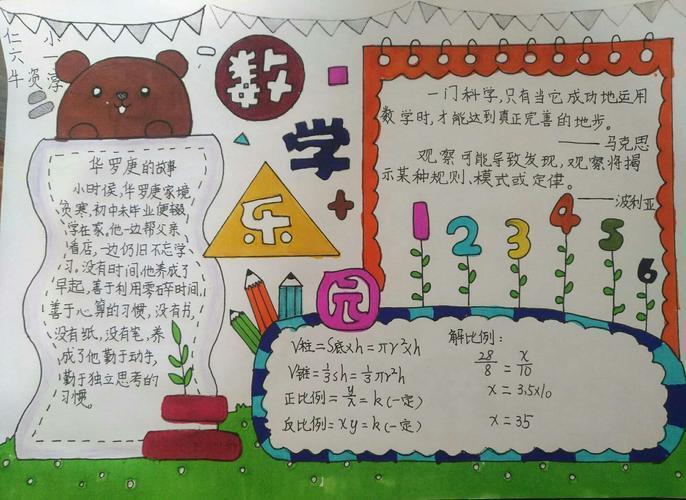 仁 小
六 一
华罗庚的故事
小时候,华罗庚家境
贫寒,初中未毕业便辍
学在家。他一边帮父亲
看店,一边仍旧不忘学
习。没有时间,他养成了
早起,善于利用零碎时间,
善于心算的习惯,没有书,
没有纸,没有笔,养
成了他勤于动手,
勤于独立思考的
习惯。
数
学
乐
园
一门科学,只有当它成功地运用
数学时,才能达到真正完善的地步。
——马克思
观察可能导致发现,观察将揭
示某种规则、模式或定律。
——波利亚
1 2 3 4 5 6
V柱=S底×h=πr²×h
V锥=1/3sh=1/3πr²h
正比例=y/x=k(一定)
反比例=xy=k(一定)
解比例:
28/8=x/10
x=3.5×10
x=35